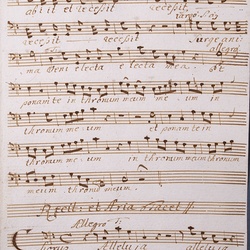 abiit et recessit.
recessit recessit. Surge ani
allegro
ma Veni electa electa mea. et
ponam te in thronum meum meum in
thronum meum et ponam te in
thronum meum in thronum meum
meum thronum meum.
Recit: et Aria tacet
Allegro
Chorus Alleluja alleluja